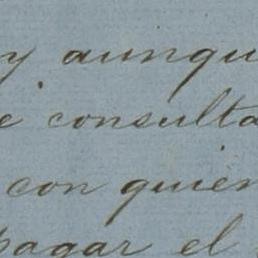 y aunqu
e consulta
con quien
pagar el